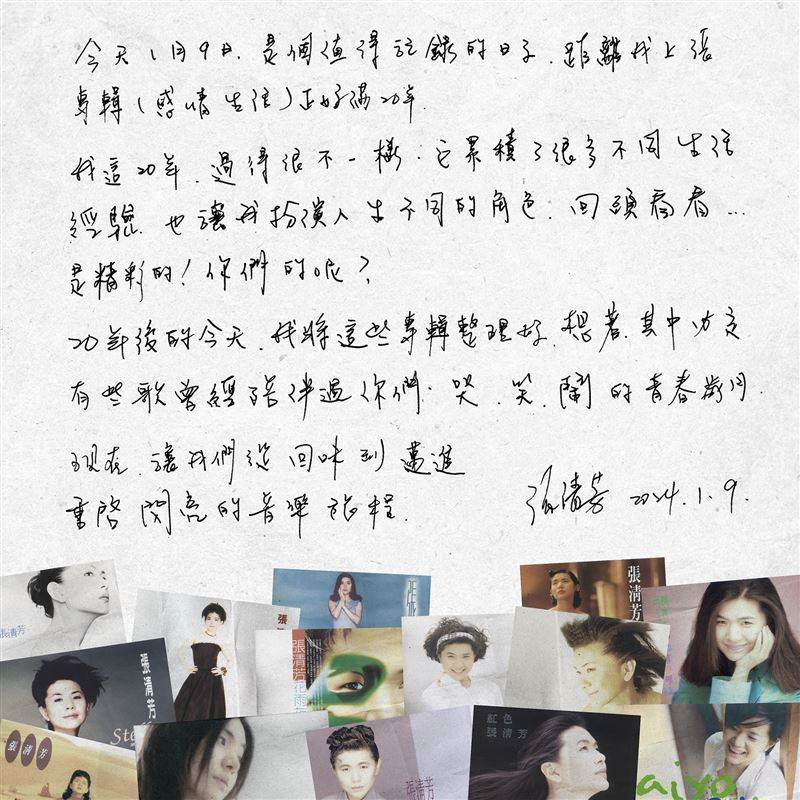 今天1月9日.是個值得記錄的日子.距離我上張
專輯(感情生活)正好滿20年.
我這20年.過得很不一樣.它累積了很多不同生活
經驗.也讓我扮演人生不同的角色.回頭看看...
是精彩的!你們的呢?
20年後的今天.我將這些專輯整理好.想著.其中應該
有些歌曾經陪伴過你們.哭.笑.鬧的青春歲月.
現在.讓我們從回味到邁進
重啓閃亮的音樂旅程.
張清芳 2024.1.9.
張清芳
張清芳
Ste
張
張清芳
花雨
張清芳
張清芳
張清芳
紅色
張清芳
aiyo.